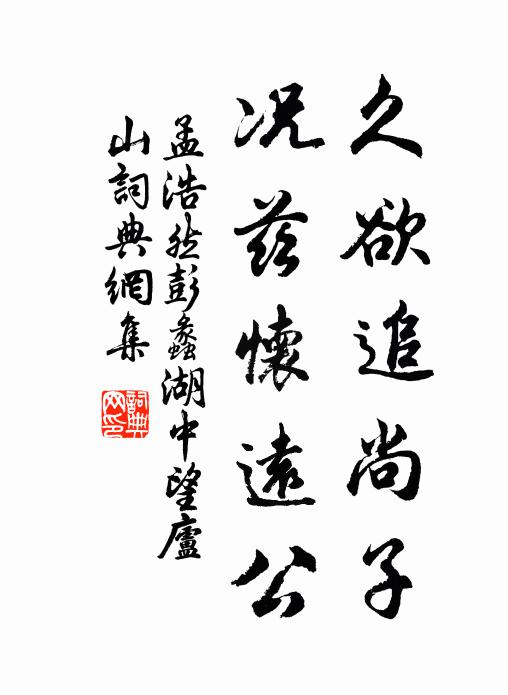 久欲追尚子
况茲懷遠公
孟浩然彭蠡湖中望廬
山詞典網集
詞典
网印